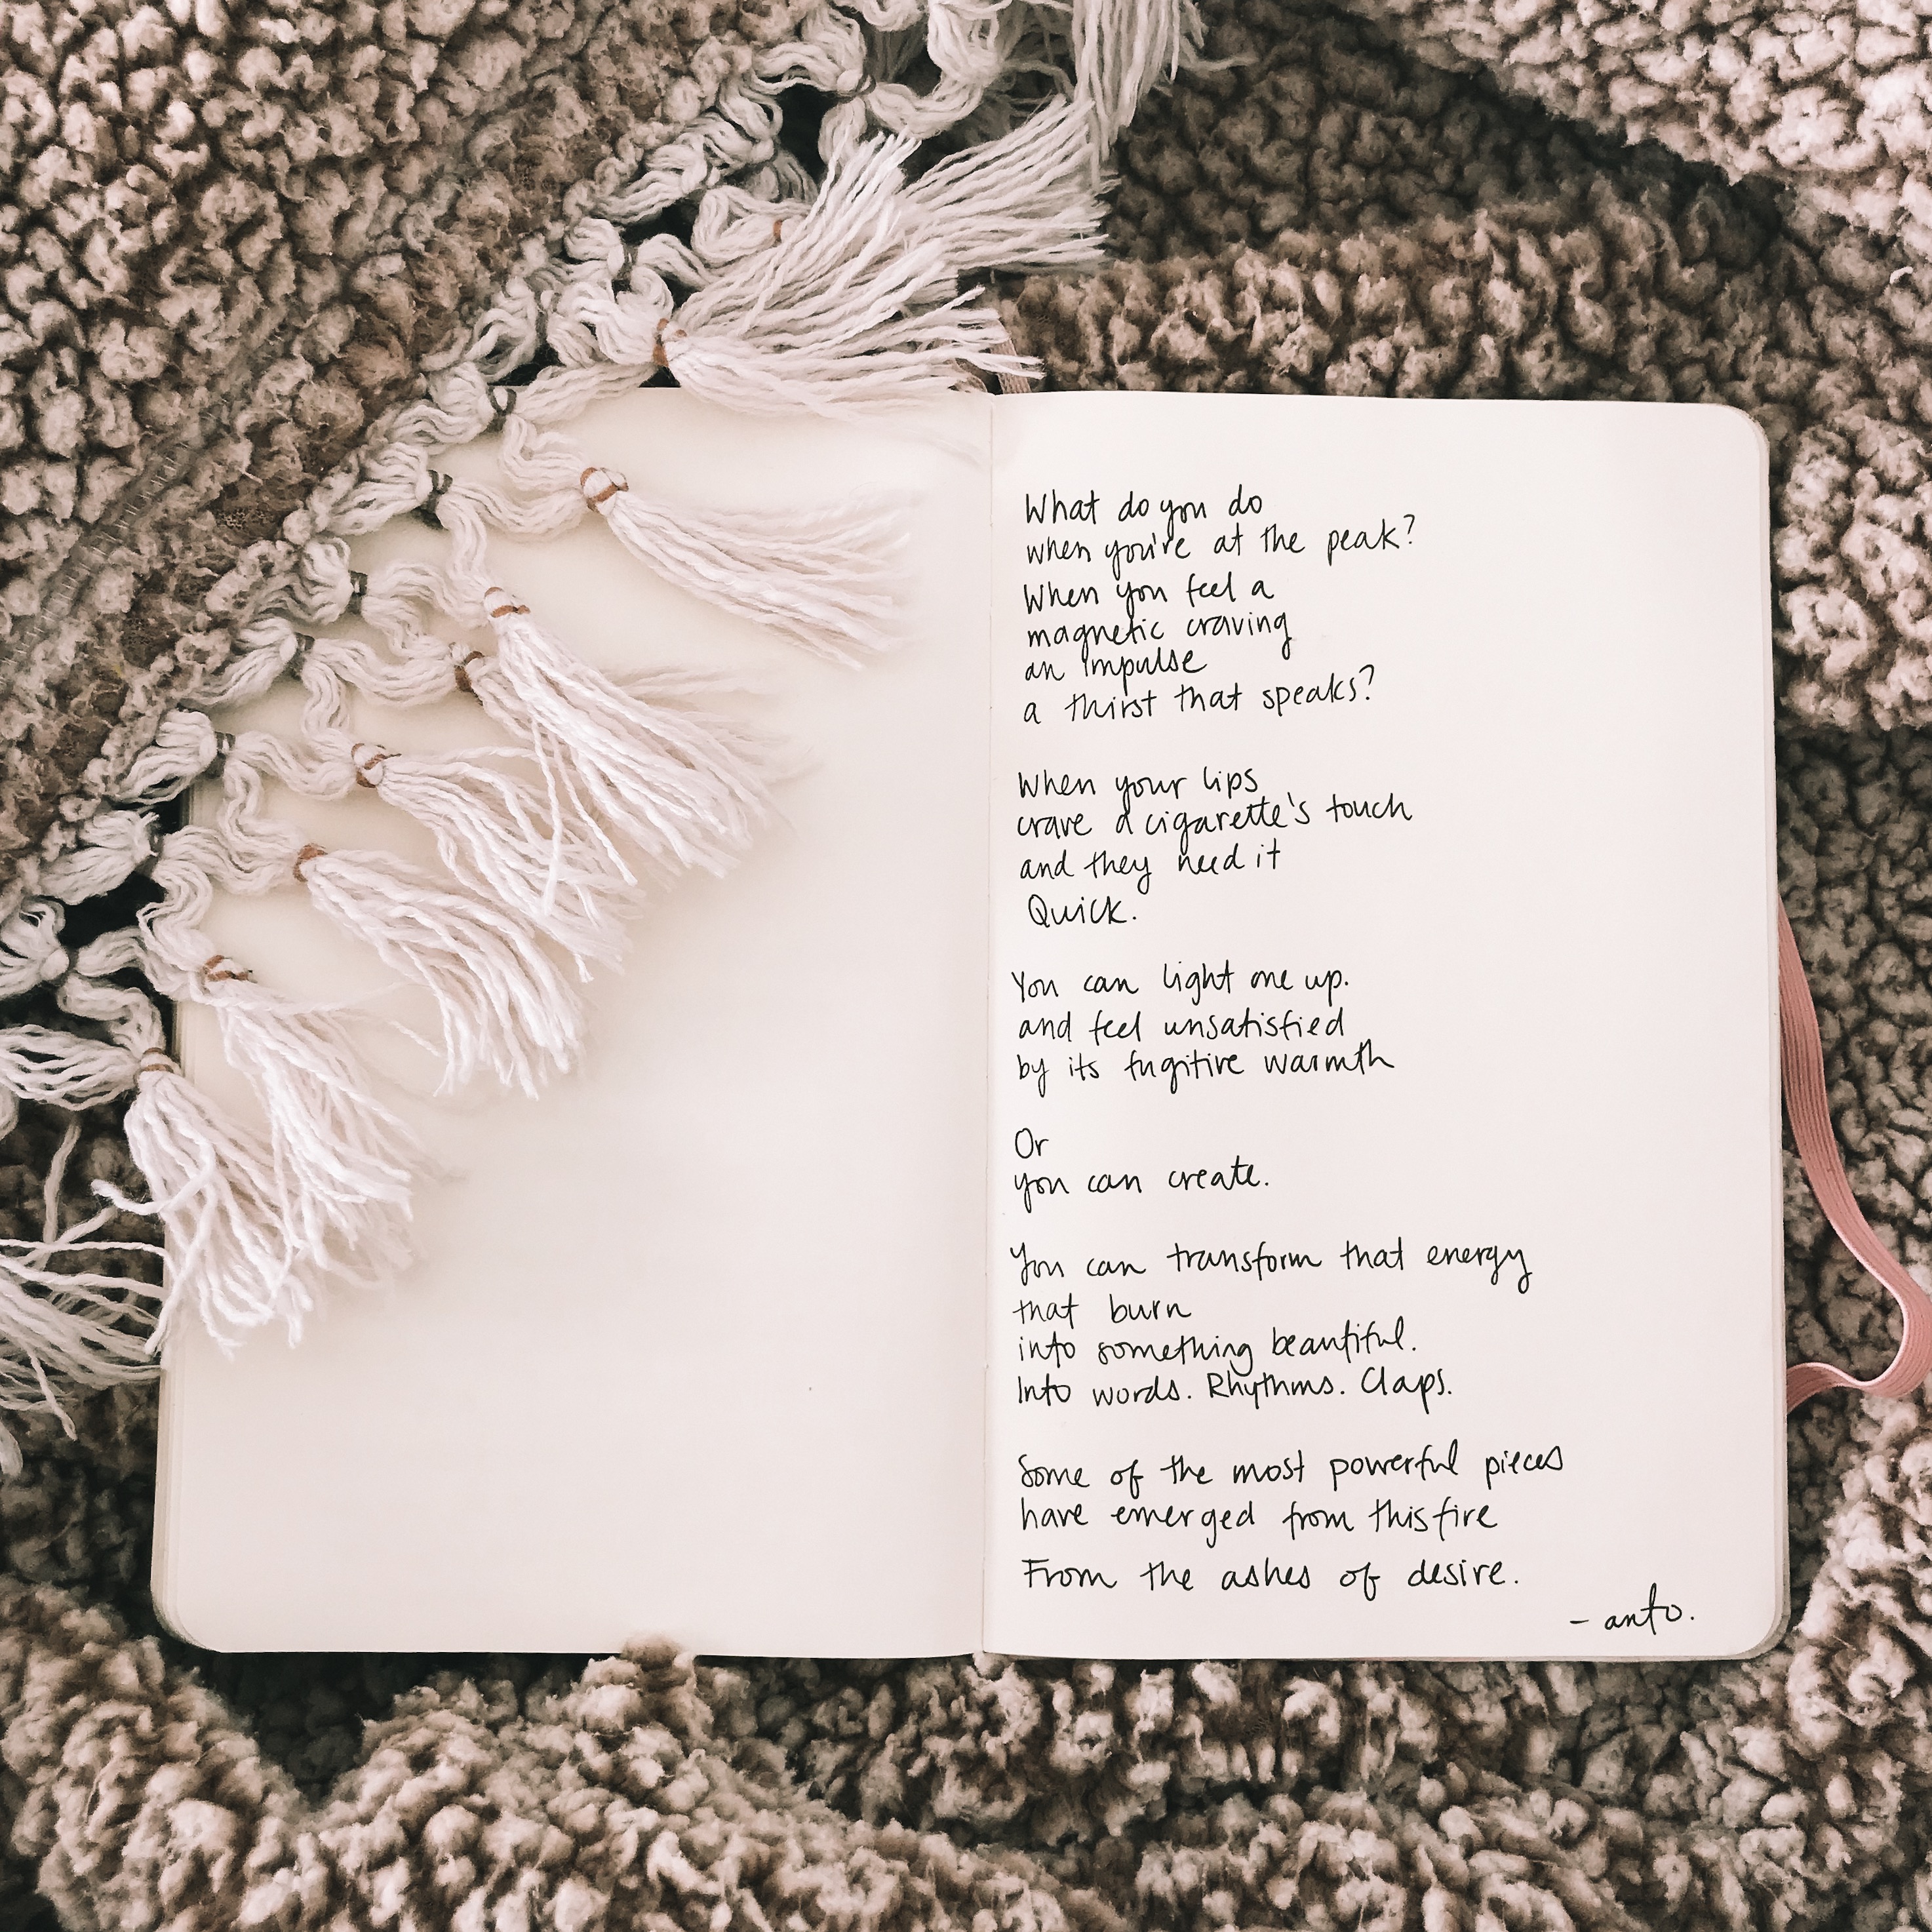 What do you do
when you're at the peak?
When you feel a
magnetic craving
an impulse
a thirst that speaks?
When your lips
crave a cigarette's touch
and they need it
Quick.
You can light one up.
and feel unsatisfied
by its fugitive warmth
Or
you can create.
You can transform that energy
that burn
into something beautiful.
Into words. Rhythms. Claps.
Some of the most powerful pieces
have emerged from this fire
From the ashes of desire.
- anto.